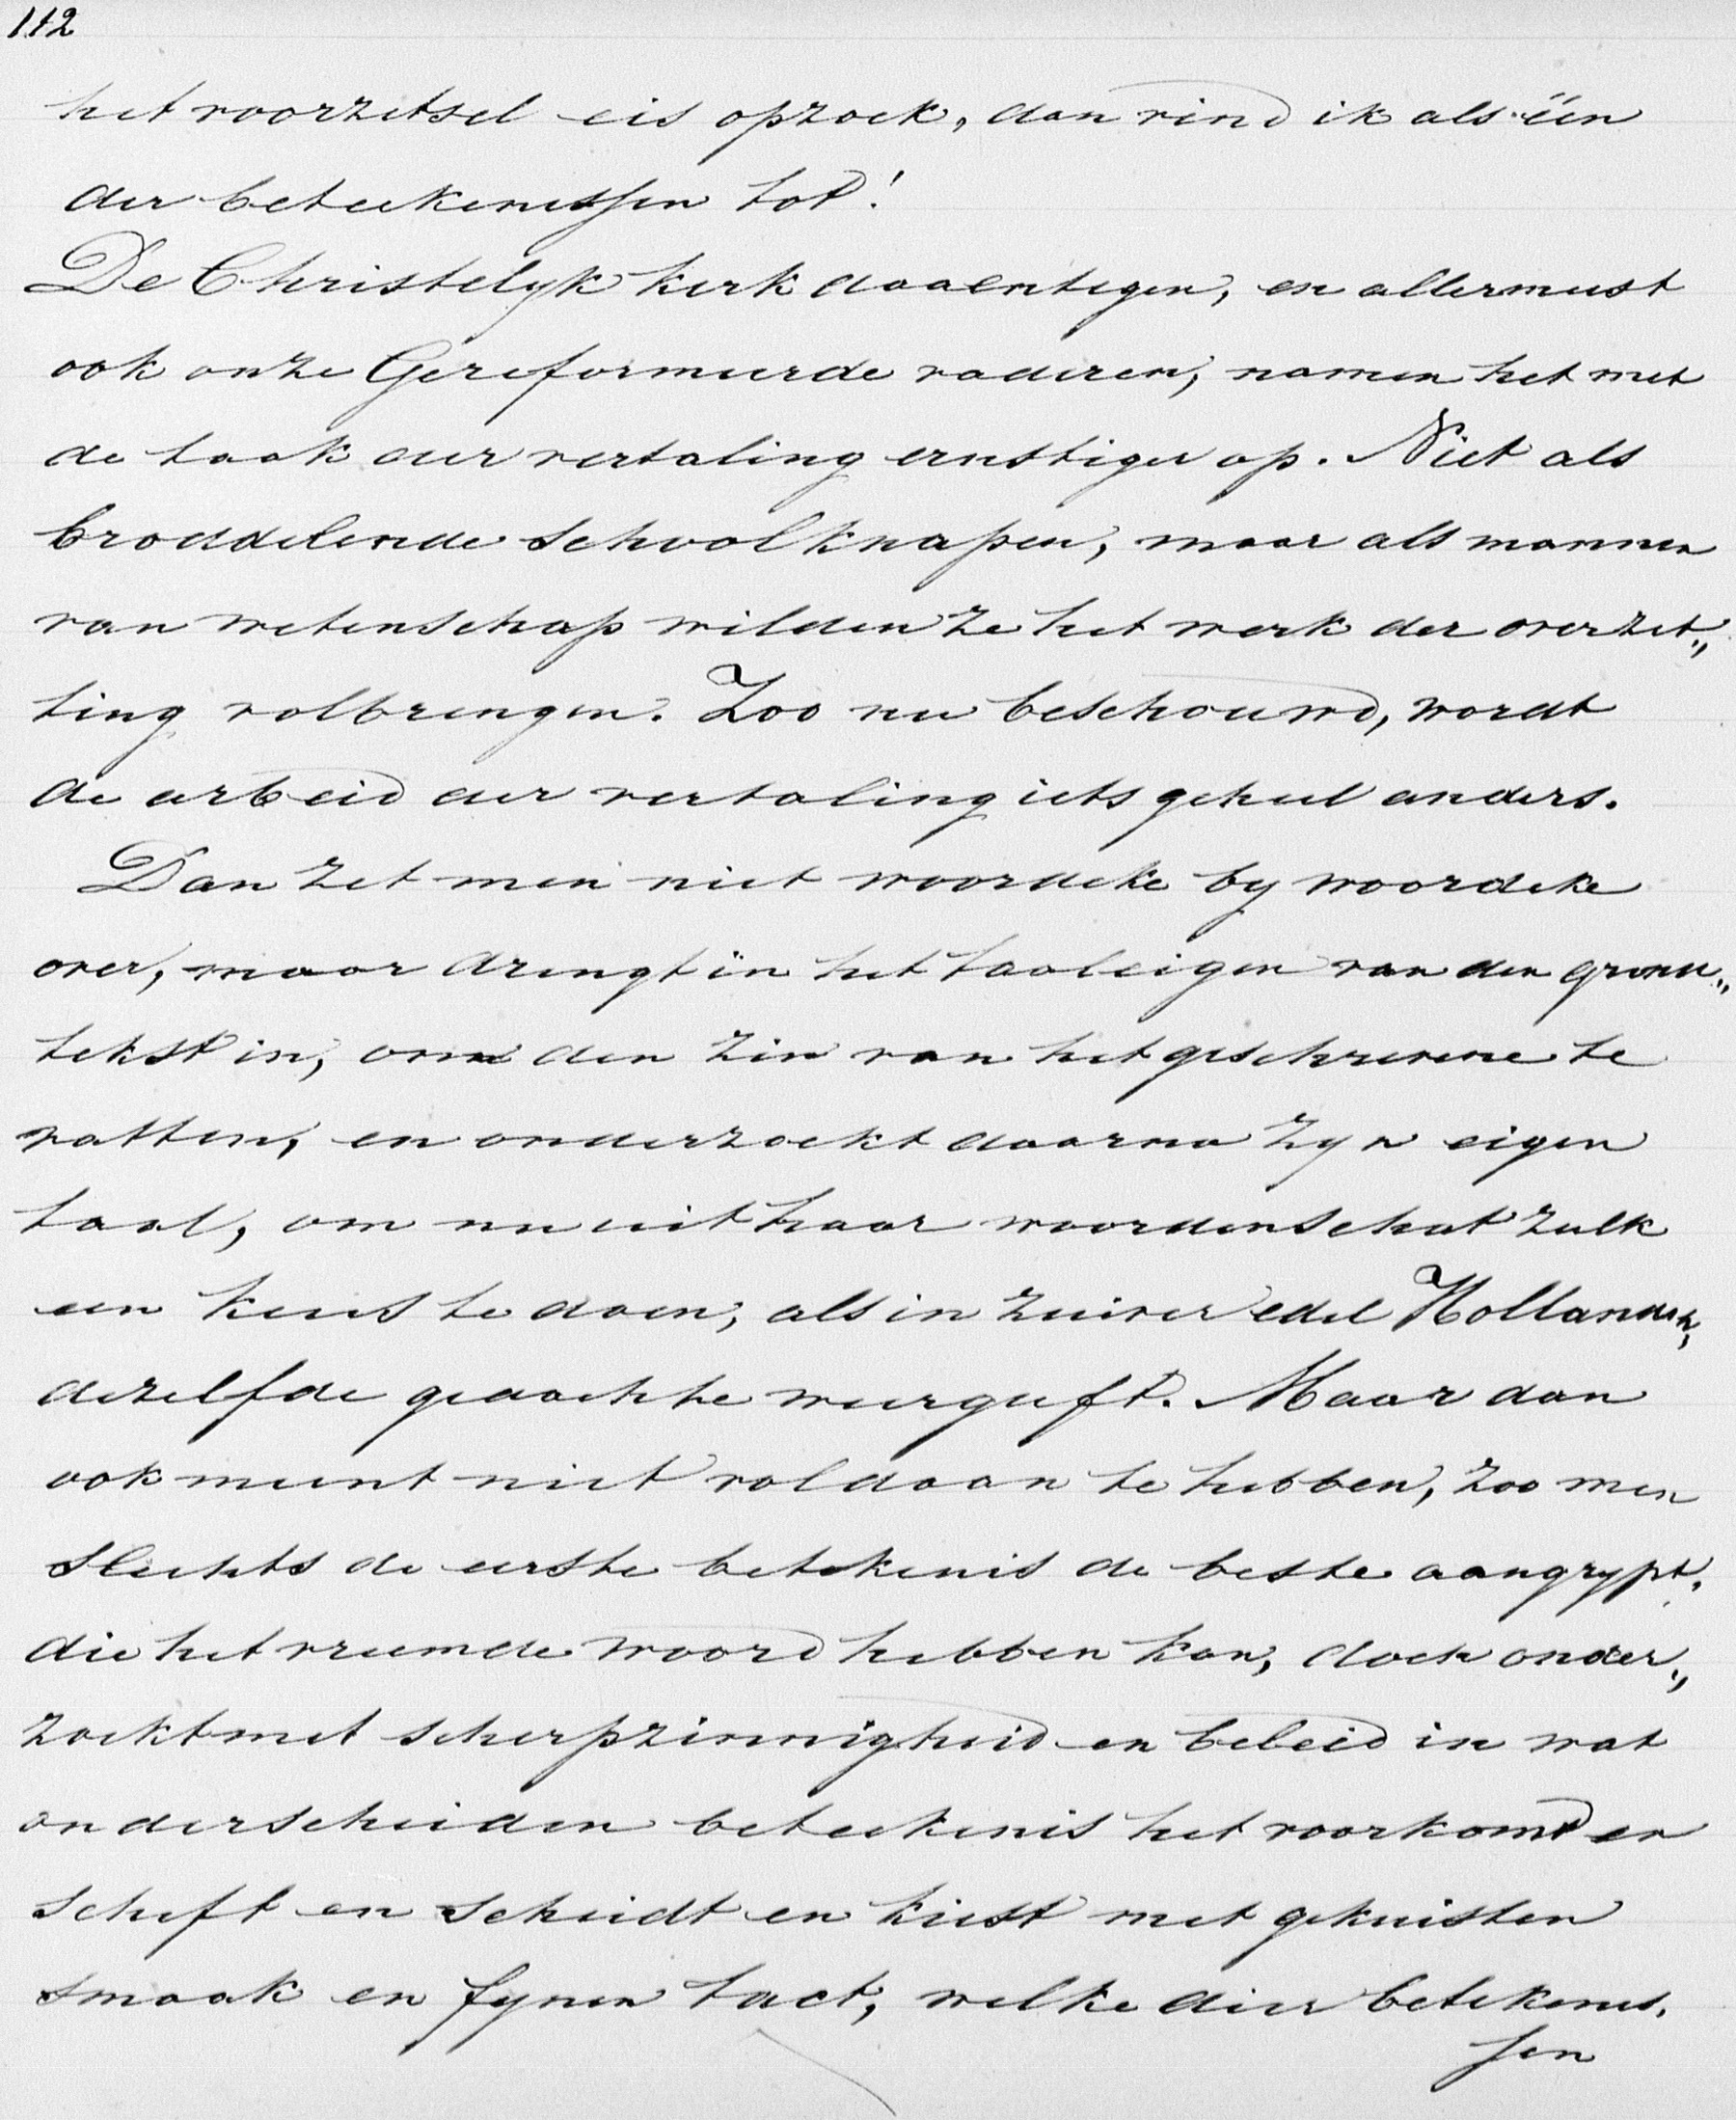 112
het voorzetsel eis opzoek, dan vind ik als één
der beteekenissen tot!
De Christelyk kerk daarentegen, en allermeest
ook onze Gereformeerde vaderen, namen het met
de taak der vertaling ernstiger op. Niet als
broddelende schoolknapen, maar als mannen
van wetenschap wilden ze het werk der overzet„
ting volbrengen. Zoo nu beschouwd, wordt
de arbeid der vertaling iets geheel anders.
Dan zet men niet woordeke by woordeke
over, maar dringt in het taaleigen van den grond„
tekst in, om den zin van het geschrevene te
vatten, en onderzoekt daarna zyn eigen
taal, om nu uit haar woordenschat zulk
een keus te doen, als in zuiver edel Hollandsch,
dezelfde gedachte weergeeft. Maar dan
ook meent niet voldaan te hebben, zoo men
slechts de eerste betekenis de beste aangrypt,
die het vreemde woord hebben kan, doch onder„
zoekt met scherpzinnigheid en beleid in wat
onderscheiden beteekenis het voorkomt en
schift en scheidt en kiest met gekuisten
smaak en fynen tact, welke dier betekenis.
sen